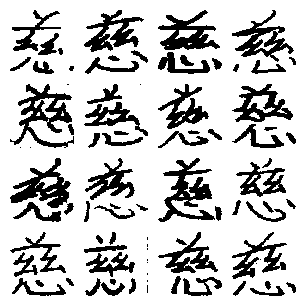 慈慈慈慈
慈慈慈慈
慈慈慈慈
慈慈慈慈